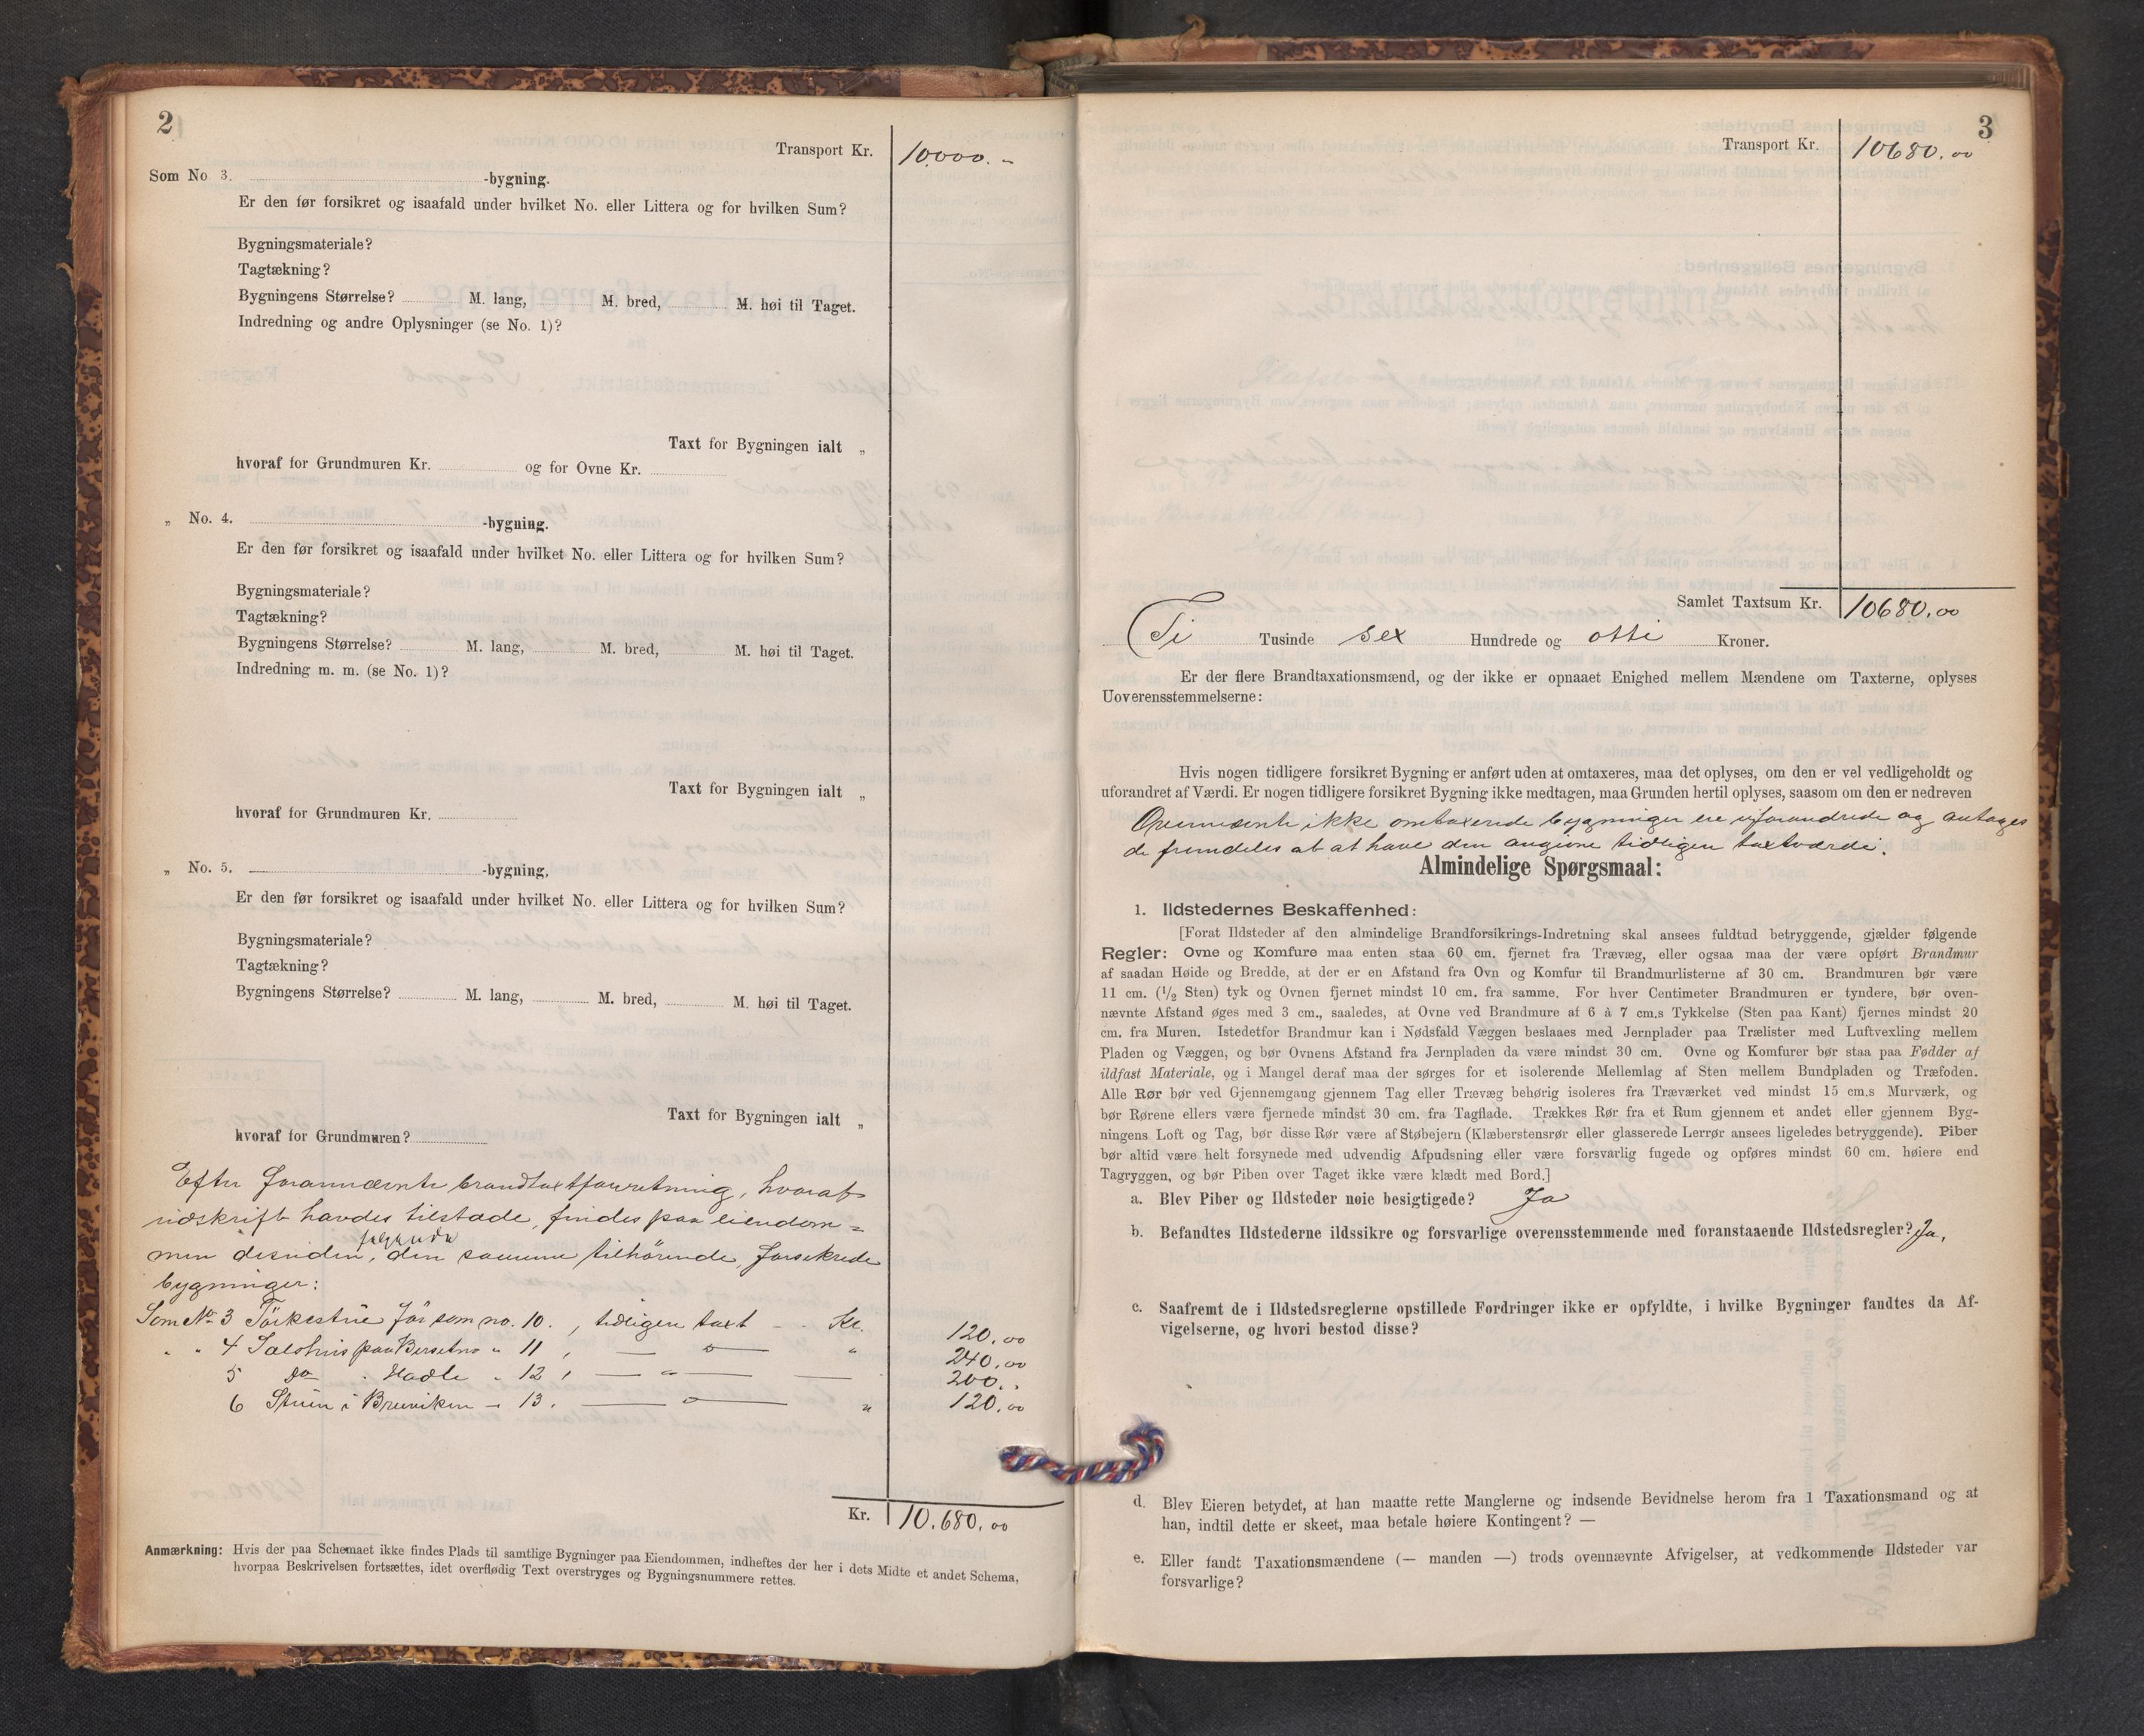 2
Transport Kr. 10,000. "
Som No 3. -bygning.
Er den før forsikret og isaafald under hvilket No. eller Littera og for hvilken Sum?
Bygningsmateriale?
Tagtækning?
Bygningens Størrelse? M. lang, M. bred, M. høi til Taget.
Indredning og andre Oplysninger (se No. 1)?
Taxt for Bygningen ialt „
hvoraf for Grundmuren Kr. og for Ovne Kr.
„ No. 4. -bygning.
Er den før forsikret og isaafald under hvilket No. eller Littera og for hvilken Sum?
Bygningsmateriale?
Tagtækning?
Bygningens Størrelse? M. lang, M. bred, M. høi til Taget.
Indredning m. m. (se No. 1)?
Taxt for Bygningen ialt „
hvoraf for Grundmuren Kr.
„ No. 5. -bygning,
Er den før forsikret og isaafald under hvilket No. eller Littera og for hvilken Sum?
Bygningsmateriale?
Tagtækning?
Bygningens Størrelse? M. lang, M. bred, M. høi til Taget.
Taxt for Bygningen ialt „
hvoraf for Grundmuren?
Efter forannævnte brandtaxtforretning, hvoraf
udskrift havdes tilstæde, findes paa eiendom=
men desuden, følgende den samme tilhörende, forsikrede
bygninger:
Som No 3 Törkestue för som no. 10., tidligere taxt - . Kr. 120.00
" " 4 Sælshus paa " 11, — " — " 240.00
5 do " " 12, — " — 200. "
6 Stuen i — 13. — " — " 120.00
Kr. 10.680.00
Anmærkning: Hvis der paa Schemaet ikke findes Plads til samtlige Bygninger paa Eiendommen, indheftes der her i dets Midte et andet Schema,
hvorpaa Beskrivelsen fortsættes, idet overflødig Text overstryges og Bygningsnummere rettes.
3
Transport Kr. 10680.00
Samlet Taxtsum Kr. 10680.00
Ti Tusinde sex Hundrede og otti Kroner.
Er der flere Brandtaxationsmænd, og der ikke er opnaaet Enighed mellem Mændene om Taxterne, oplyses
Uoverensstemmelserne:
Hvis nogen tidligere forsikret Bygning er anført uden at omtaxeres, maa det oplyses, om den er vel vedligeholdt og
uforandret af Værdi. Er nogen tidligere forsikret Bygning ikke medtagen, maa Grunden hertil oplyses, saasom om den er nedreven
Ovennævnte ikke omtaxerede bygninger ere uforandrede og antages
de fremdeles at have den angivne tidligere taxtværdi.
Almindelige Spørgsmaal:
1. Ildstedernes Beskaffenhed:
[Forat Ildsteder af den almindelige Brandforsikrings-Indretning skal ansees fuldtud betryggende, gjælder følgende
Regler: Ovne og Komfure maa enten staa 60 cm. fjernet fra Trævæg, eller ogsaa maa der være opført Brandmur
af saadan Høide og Bredde, at der er en Afstand fra Ovn og Komfur til Brandmurlisterne af 30 cm. Brandmuren bør være
11 cm. (1/2 Sten) tyk og Ovnen fjernet mindst 10 cm. fra samme. For hver Centimeter Brandmuren er tyndere, bør oven-
nævnte Afstand øges med 3 cm., saaledes, at Ovne ved Brandmure af 6 à 7 cm.s Tykkelse (Sten paa Kant) fjernes mindst 20
cm. fra Muren. Istedetfor Brandmur kan i Nødsfald Væggen beslaaes med Jernplader paa Trælister med Luftvexling mellem
Pladen og Væggen, og bør Ovnens Afstand fra Jernpladen da være mindst 30 cm. Ovne og Komfurer bør staa paa Fødder af
ildfast Materiale, og i Mangel deraf maa der sørges for et isolerende Mellemlag af Sten mellem Bundpladen og Træfoden.
Alle Rør bør ved Gjennemgang gjennem Tag eller Trævæg behørig isoleres fra Træværket ved mindst 15 cm.s Murværk, og
bør Rørene ellers være fjernede mindst 30 cm. fra Tagflade. Trækkes Rør fra et Rum gjennem et andet eller gjennem Byg-
ningens Loft og Tag, bør disse Rør være af Støbejern (Klæberstensrør eller glasserede Lerrør ansees ligeledes betryggende). Piber
bør altid være helt forsynede med udvendig Afpudsning eller være forsvarlig fugede og opføres mindst 60 cm. høiere end
Tagryggen, og bør Piben over Taget ikke være klædt med Bord.]
a. Blev Piber og Ildsteder nøie besigtigede? Ja
b. Befandtes Ildstederne ildssikre og forsvarlige overensstemmende med foranstaaende Ildstedsregler? Ja,
c. Saafremt de i Ildstedsreglerne opstillede Fordringer ikke er opfyldte, i hvilke Bygninger fandtes da Af-
vigelserne, og hvori bestod disse?
d. Blev Eieren betydet, at han maatte rette Manglerne og indsende Bevidnelse herom fra 1 Taxationsmand og at
han, indtil dette er skeet, maa betale høiere Kontingent? —
e. Eller fandt Taxationsmændene (— manden —) trods ovennævnte Afvigelser, at vedkommende Ildsteder var
forsvarlige?